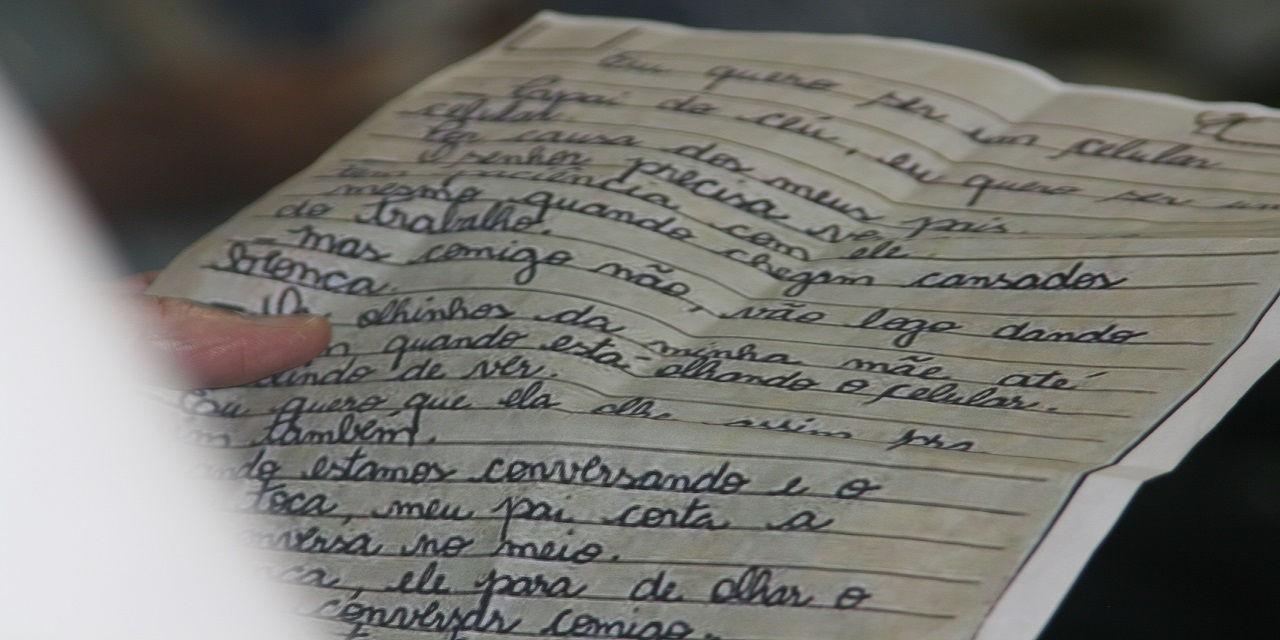 Eu quero ser um celular
Papai do céu, eu quero ser um
celular.
Por causa dos meus pais.
O senhor precisa ver
tem paciência com ele
mesmo quando chegam cansados
do trabalho.
mas comigo não, vão logo dando
bronca.
olhinhos da minha mãe até
quando esta olhando o celular.
de ver.
Eu quero que ela olhe assim pra
também.
estamos conversando e o
toca, meu pai corta a
no meio.
ele para de olhar o
conversar comigo.